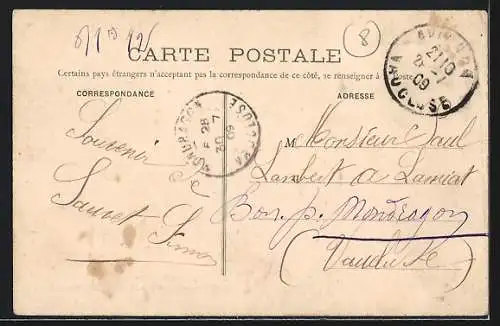 8
CARTE POSTALE
Certains pays étrangers n'acceptent pas la correspondance de ce côté, se renseigner à la Poste
CORRESPONDANCE
ADRESSE
AVIGNON
VAUCLUSE
09
MONDRAGON
VAUCLUSE
28
7
09
Souvenir
Sauvet
M Monsieur Paul
Lambert a
Bon. p. Mondragon
(Vaucluse)